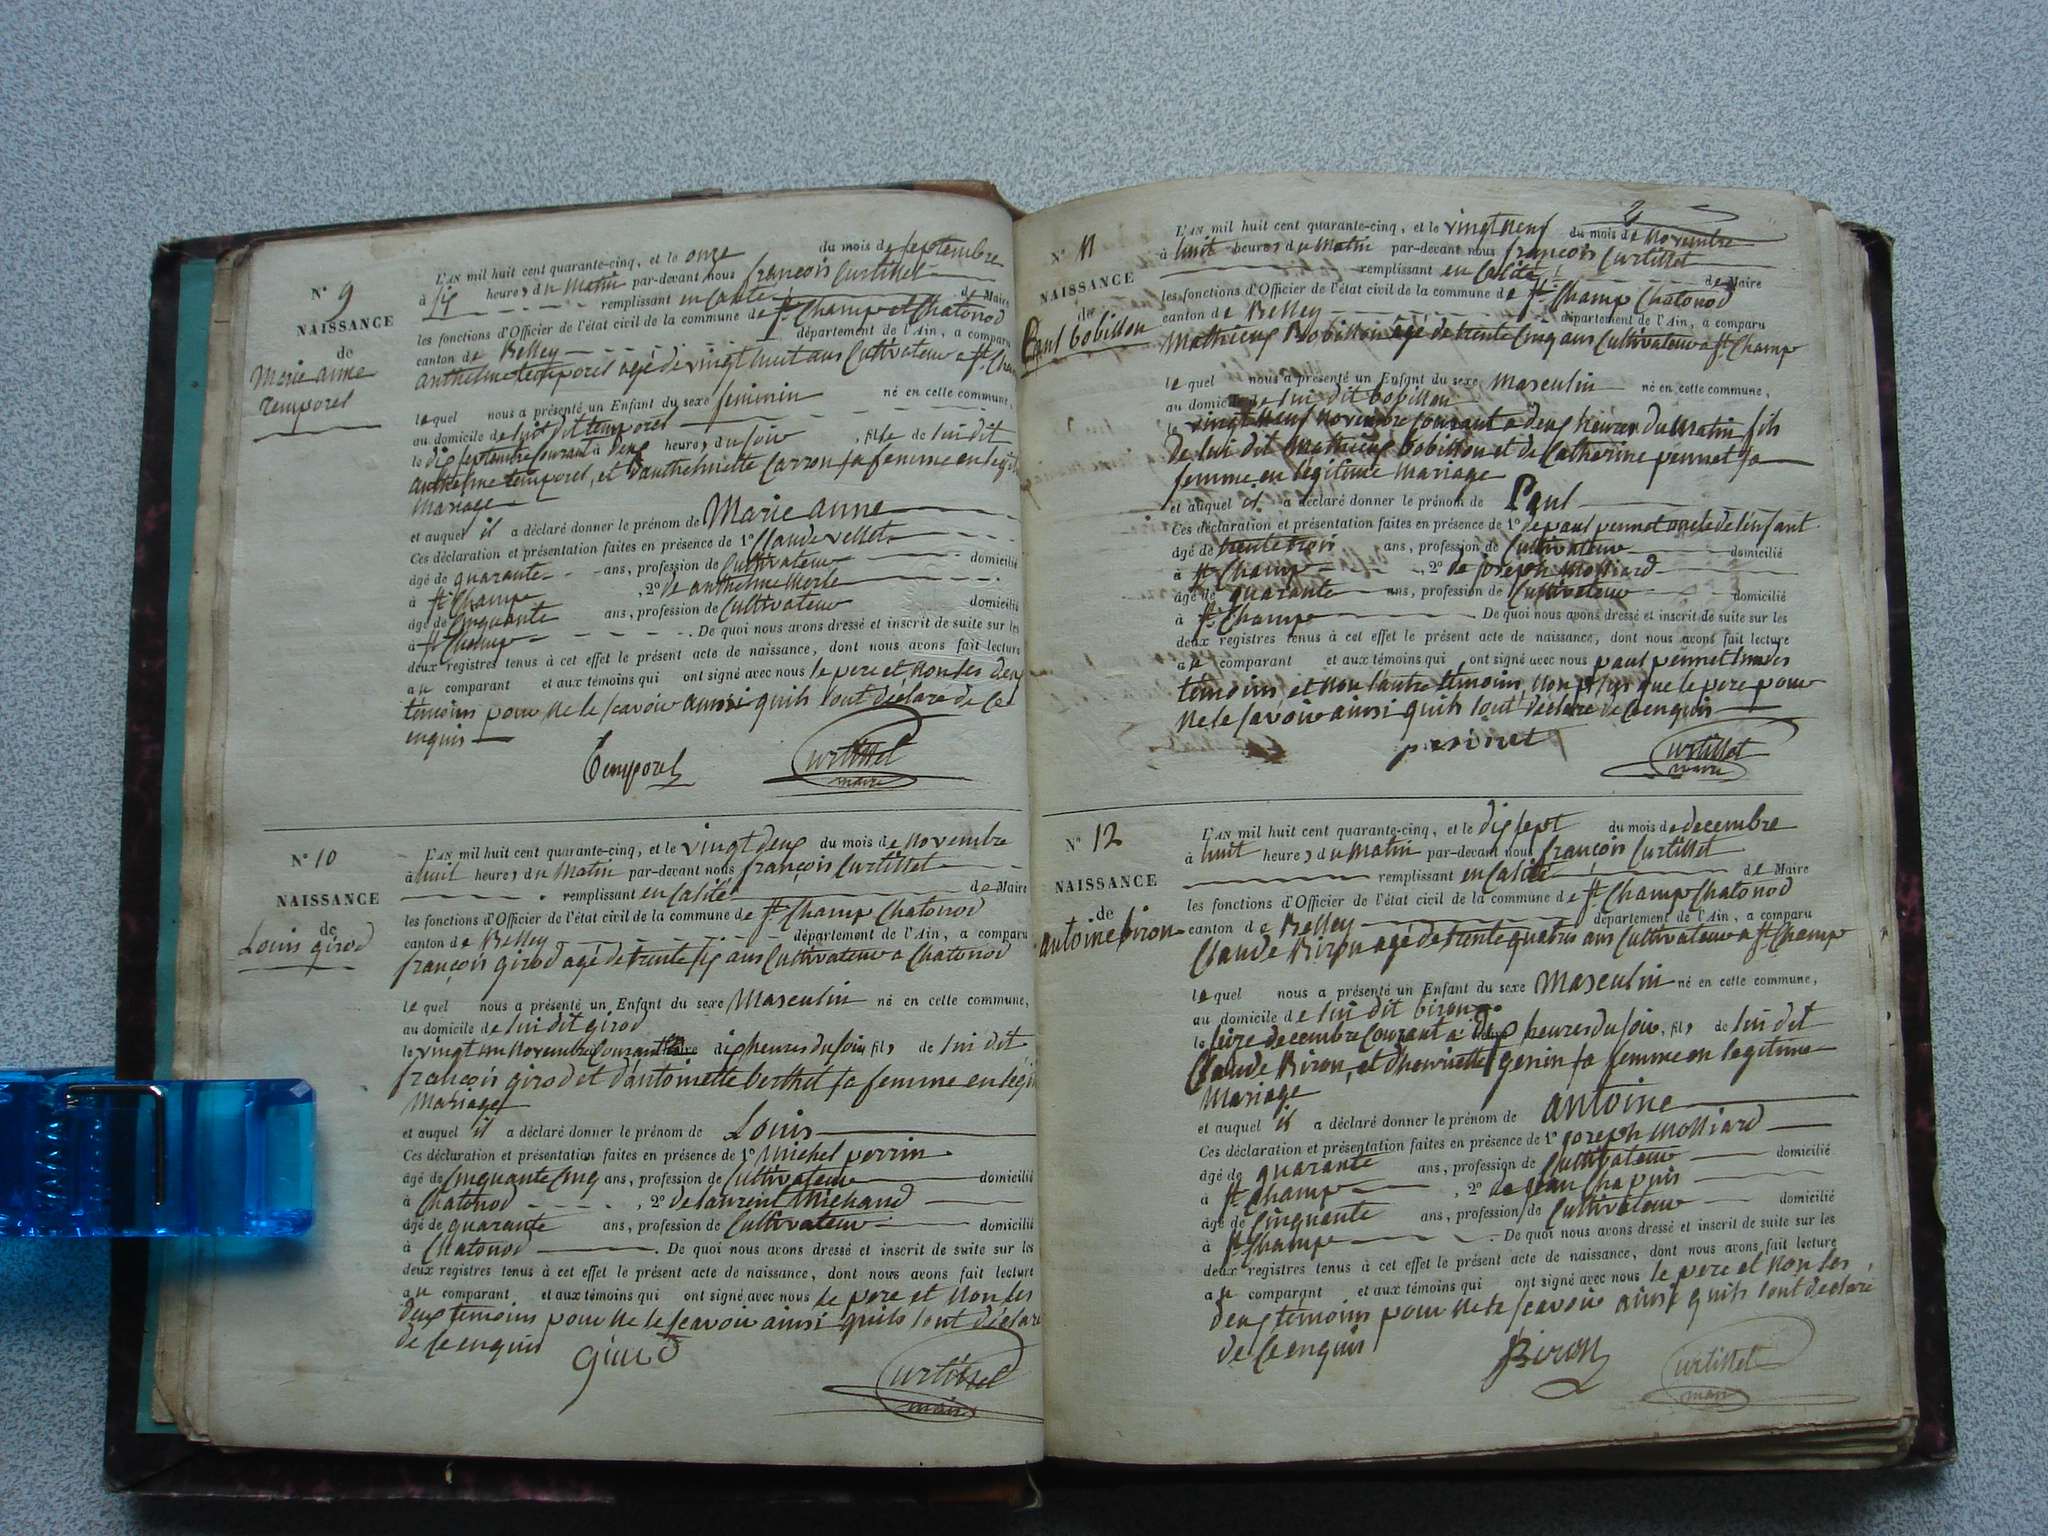 N° 9
NAISSANCE
de
Marie anne
temporel
L'AN mil huit cent quarante-cinq, et le onze du mois de septembre
à six heures du matin par-devant nous françois Curtillet
remplissant en calité de Maire
les fonctions d'Officier de l'état civil de la commune de St. Champ et Chatonod
canton de Belley département de l'Ain, a comparu
anthelme temporel agé de vingt huit ans Cultivateur a St. Cham
lequel nous a présenté un Enfant du sexe feminin né en cette commune,
au domicile de lui dit temporel
le dix septembre courant à deux heures du soir, fille de lui dit
anthelme temporel, et d'anthelmette Carron sa femme en legit
mariage
et auquel il a déclaré donner le prénom de Marie anne
Ces déclaration et présentation faites en présence de 1° Claude vellet
âgé de quarante ans, profession de Cultivateur domicilié
à St Champ, 2° de anthelme Merle
âgé de cinquante ans, profession de Cultivateur domicilié
à St Champ. De quoi nous avons dressé et inscrit de suite sur les
deux registres tenus à cet effet le présent acte de naissance, dont nous avons fait lecture
au comparant et aux témoins qui ont signé avec nous le pere et non les deux
témoins pour ne le scavoir ainsi quils l'ont déclaré de ce
enquis
Temporel
Curtillet
maire
N° 10
NAISSANCE
de
Louis girod
L'AN mil huit cent quarante-cinq, et le vingt deux du mois de novembre
à huit heures du matin par-devant nous françois Curtillet
remplissant en calité de Maire
les fonctions d'Officier de l'état civil de la commune de St Champ Chatonod
canton de Belley département de l'Ain, a comparu
françois girod agé de trente six ans Cultivateur a Chatonod
lequel nous a présenté un Enfant du sexe Masculin né en cette commune,
au domicile de lui dit girod
le vingt un novembre courant dix heures du soir, fils de lui dit
françois girod et d'antoinette berthet sa femme en légi
mariage
et auquel il a déclaré donner le prénom de Louis
Ces déclaration et présentation faites en présence de 1° Michel perrin
âgé de cinquante cinq ans, profession de Cultivateur domicilié
à Chatonod, 2° de laurent Michaud
âgé de quarante ans, profession de Cultivateur domicilié
à Chatonod. De quoi nous avons dressé et inscrit de suite sur les
deux registres tenus à cet effet le présent acte de naissance, dont nous avons fait lecture
au comparant et aux témoins qui ont signé avec nous le pere et non les
deux témoins pour ne le scavoir ainsi quils l'ont déclaré
de ce enquis
girod
Curtillet
maire
2
N° 11
NAISSANCE
de
Paul bobillon
L'AN mil huit cent quarante-cinq, et le vingt neuf du mois de novembre
à huit heures du matin par-devant nous françois Curtillet
remplissant en calité de Maire
les fonctions d'Officier de l'état civil de la commune de St. Champ Chatonod
canton de Belley département de l'Ain, a comparu
Mathieux Bobillon agé de trente cinq ans Cultivateur a St Champ
lequel nous a présenté un Enfant du sexe Masculin né en cette commune,
au domicile de lui dit bobillon
le vingt neuf novembre courant a deux heures du matin fils
de lui dit Mathieux bobillon et de Catherine pennet sa
femme en légitime mariage
et auquel il a déclaré donner le prénom de Paul
Ces déclaration et présentation faites en présence de 1° de paul pennet oncle de l'enfant
âgé de trente trois ans, profession de Cultivateur domicilié
à St Champ, 2° de joseph Molliard
âgé de quarante ans, profession de Cultivateur domicilié
à St. Champ. De quoi nous avons dressé et inscrit de suite sur les
deux registres tenus à cet effet le présent acte de naissance, dont nous avons fait lecture
au comparant et aux témoins qui ont signé avec nous paul pennet l'un des
témoins et non l'autre témoins non plus que le pere pour
ne le savoir ainsi quils l'ont déclaré de ce enquis
pennet
Curtillet
maire
N° 12
NAISSANCE
de
antoine biron
L'AN mil huit cent quarante-cinq, et le dix sept du mois de decembre
à huit heures du matin par-devant nous françois Curtillet
remplissant en calité de Maire
les fonctions d'Officier de l'état civil de la commune de St. Champ Chatonod
canton de Belley département de l'Ain, a comparu
Claude Biron agé de trente quatre ans Cultivateur a St Champ
lequel nous a présenté un Enfant du sexe Masculin né en cette commune,
au domicile de lui dit biron
le seize decembre courant à dix heures du soir, fils de lui dit
Claude Biron, et d'henriette genin sa femme en legitime
mariage
et auquel il a déclaré donner le prénom de antoine
Ces déclaration et présentation faites en présence de 1° joseph Molliard
âgé de quarante ans, profession de Cultivateur domicilié
à St Champ, 2° de jean Chapuis
âgé de Cinquante ans, profession de Cultivateur domicilié
à St Champ. De quoi nous avons dressé et inscrit de suite sur les
deux registres tenus à cet effet le présent acte de naissance, dont nous avons fait lecture
au comparant et aux témoins qui ont signé avec nous le pere et non les
deux témoins pour ne le scavoir ainsi quils l'ont déclaré
de ce enquis
Biron
Curtillet
maire